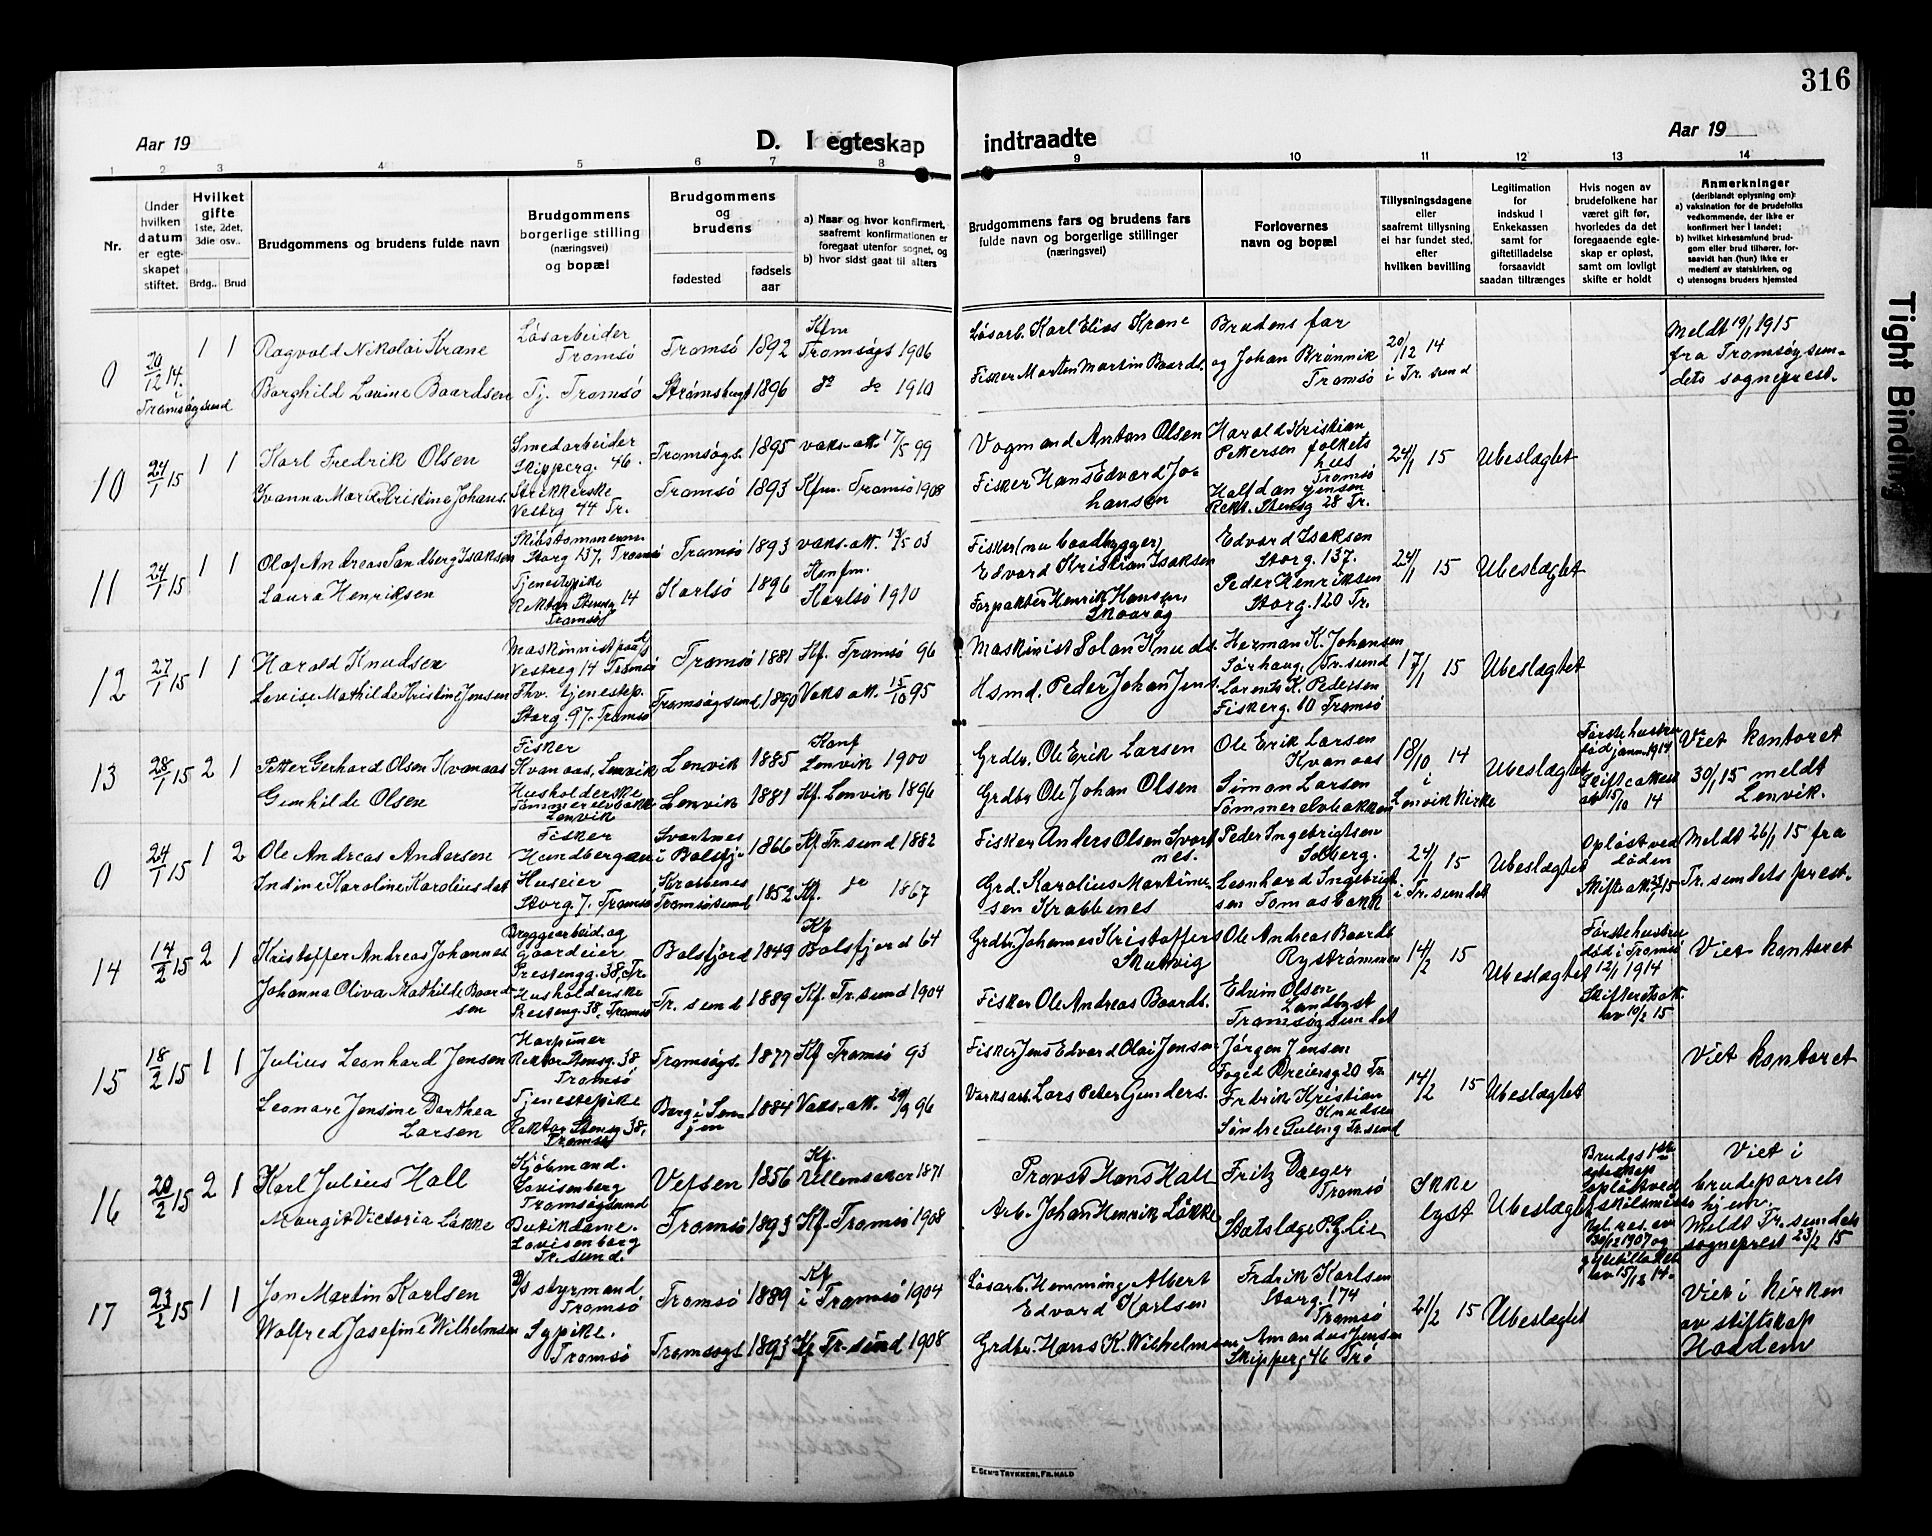 316
Aar 19
D. I egteskap
indtraadte
Aar 19
1 2 3 4 5 6 7 8 9 10 11 12 13 14
Nr.
Under
hvilken
datum
er egte-
skapet
stiftet.
Hvilket
gifte
1ste, 2det,
3die osv..
Brdg..
Brud
Brudgommens og brudens fulde navn
Brudgommens
borgerlige stilling
(næringsvei)
og bopæl
Brudgommens
og
brudens
fødested
fødsels
aar
a) Naar og hvor konfirmert,
saafremt konfirmationen er
foregaat utenfor sognet, og
b) hvor sidst gaat til alters
Brudgommens fars og brudens fars
fulde navn og borgerlige stillinger
(næringsvei)
Forlovernes
navn og bopæl
Tillysningsdagene
eller
saafremt tillysning
ei har fundet sted,
efter
hvilken bevilling
Legitimation
for
indskud i
Enkekassen
samt for
giftetilladelse
forsaavidt
saadan tiltrænges
Hvis nogen av
brudefolkene har
været gift før,
hvorledes da det
foregaaende egte-
skap er opløst,
samt om lovligt
skifte er holdt
Anmerkninger
(deriblandt oplysning om):
a) vaksination for de brudefolks
vedkommende, der ikke er
konfirmert her i landet;
b) hvilket kirkesamfund brud-
gom eller brud tilhører, for-
saavidt han (hun) ikke er
medlem av statskirken, og
c) utensogns bruders hjemsted
0
20/12 14.
i
Tromsøysund
1 1
Ragvald Nikolai Krane
Borghild Lovine Baardsen
Løsarbeider
Tromsø
Tj. Tromsø
Tromsø 1892
Strømsbugt 1896
Kfm
Tromsøgs 1906
do do 1910
Løsarb. Karl Elias Krane
Fisker Morten Martin Baards.
Brudens far
og Johan Brønnik
Tromsø
20/12 14
i Tr. sund
Meldt 19/1 1915
fra Tromsøysun=
dets sogneprest.
10
24/1 15
1 1
Karl Fredrik Olsen
Smedarbeider
Skipperg. 46.
Strikkerske
Vestrg 44 Tr.
Tromsøgs. 1895
Tromsø 1893
vaks-att. 17/5 99
Kfm. Tromsø 1908
Vogmand Anton Olsen
Fisker Hans Edvard Jo-
hansen
Harald Kristian
Pettersen folkets
hus
Tromsø
Halfdan Jensen
Rekt. Stensg 28 Tr.
24/1 15
Ubeslægtet
11
24/1 15
1 1
Olaf Andreas Sandberg Isaksen
Laura Henriksen
Skibstømmerm
Storg 137, Tromsø
Tjenestepike
Rektor Stensg 14
Tromsø
Tromsø 1893
Karlsø 1896
vaks.att. 13/5 03
Konfm.
Karlsø 1910
Fisker (nu baadbygger)
Edvard Kristian Isaksen
Forpakter Henrik Hansen,
Skoarøg
Edvard Isaksen
Storg. 137.
Peder Henriksen
Storg. 120 Tr.
24/1 15
Ubeslægtet
12
27/1 15
1 1
Harald Knudsen
Lovise Mathilde Kristine Jensen
Vestreg 14 Tromsø
Fhv. tjenestep.
Storg. 97. Tromsø
Tromsø 1881
Tromsøysund 1890
Kf. Tromsø 96
Vaks att. 15/10 95
Maskinist Polan Knuds.
Hsmd. Peder Johan Jens.
Herman K. Johansen
Sørhaug, Tr.sund
Lorents K. Pedersen
Fiskerg. 10 Tromsø
17/1 15
Ubeslægtet
13
28/1 15
2 1
Petter Gerhard Olsen Kvanaas
Gunhilde Olsen
Fisker
Kvanaas, Lenvik
Husholderske
Tømmerelvbakke
Lenvik
Lenvik 1885
Lenvik 1881
Konf
Lenvik 1900
Kf. Lenvik 1896
Grdbr. Ole Erik Larsen
Grdbr Ole Johan Olsen
Ole Erik Larsen
Kvanaas
Simon Larsen
Tømmerelvbakken
18/10 14
i
Lenvik kirke
Ubeslægtet
Første hustru
død janu. 1914
Skifteattest
av 15/10 14
Viet kontoret
30/1 15 meldt
Lenvik.
0
24/1 15
1 2
Ole Andreas Andersen
Indine Karoline Karoliusdat
Fisker
Huseier
Storg 7. Tromsø
Svartnes
i Balsfj. 1866
Krabbenes
Tromsøsund 1852
Kf. Tr. sund 1882
Kf. do 1867
Fisker Anders Olsen Svart
nes.
Grd. Karolius Martinu-
sen Krabbenes
Peder Ingebrigtsen
Solberg.
Leonhard Ingebrigt
sen Tomasbakk
24/1 15
i Tr. sundet
Ubeslægtet
Opløst ved
døden
Meldt 26/1 15 fra
Tr. sundets prest.
14
14/2 15
2 1
Kristoffer Andreas Johannes
Johanna Oliva Mathilde Baard
sen
Bryggearbeid. og
gaardeier
Prestengg. 38, Tr.
Husholderske
Presteng. 38, Tromsø
Balsfjord 1849
Tr. sund 1889
Kf
Balsfjord 64
Kf. Tr. sund 1904
Grdbr. Johannes Kristoffers
Skutvig
Fisker Ole Andreas Baards.
Ole Andreas Baards
Rystrømmen
Edvin Olsen
Landbyst
Tromsøysundet
14/2 15
Ubeslægtet
Første hustru
død i Tromsø
12/1 1914
Skifteretsatt.
av 10/2 15
Viet kontoret
15
18/2 15
1 1
Julius Leonhard Jensen
Leonore Jensine Dorthea
Larsen
Harpuner
Rektor Stensg. 38
Tromsø
Tjenestepike
Rektor Stensg 38,
Tromsø
Tromsøgs. 1877
Berg i Sen-
jen 1884
Kf Tromsø 93
Vaks.-att. 29/9 96
Fisker Jens Edvard Olai Jensen
Varksarb. Lars Peter Gunders.
Jørgen Jensen
Foged Dreiersg 20 Tr
Fredrik Kristian
Knudsen
14/2 15
Ubeslægtet
Viet kontoret
16
20/2 15
2 1
Karl Julius Hall
Margit Victoria Løkke
Kjøbmand.
Lovisenberg
Tromsøysund
Butikdame.
Lovisenborg
Tr. sund.
Vefsen 1856
Tromsø 1893
Kf.
Ullensaker 1871
Kf. Tromsø 1908
Provst Hans Hall
Arb. Johan Henrik Løkke
Fritz Dreyer
Tromsø
Statslæge P. G. Lie
Ikke
lyst
Ubeslægtet
Brudgs 1ste
egteskap
opløst ved
skilsmisse
kgl. res. av
30/12 1907 og
giftetilladelse
av 15/12 14.
Viet i
brudeparrets
hjem.
Meldt Tr. sundets
sogneprest 23/2 15
17
23/2 15
1 1
Jon Martin Karlsen
Wolfred Josefine Wilhelmsen
D/s styrmand,
Tromsø
Sypike.
Tromsø
Tromsø 1889
Tromsøgs 1893
Kf
i Tromsø 1904
Kf Tr-sund 1908
Løsarb. Hemming Albert
Edvard Karlsen
Grdbr. Hans K. Wilhelmsen
Fredrik Karlsen
Storg. 174
Tromsø
Amandus Jensen
Skipperg 46 Trø
21/2 15
Ubeslægtet
Viet i kirken
av stiftskap
Haddem
E. SEM'S TRYKKERI, FR.HALD
Tight Binding